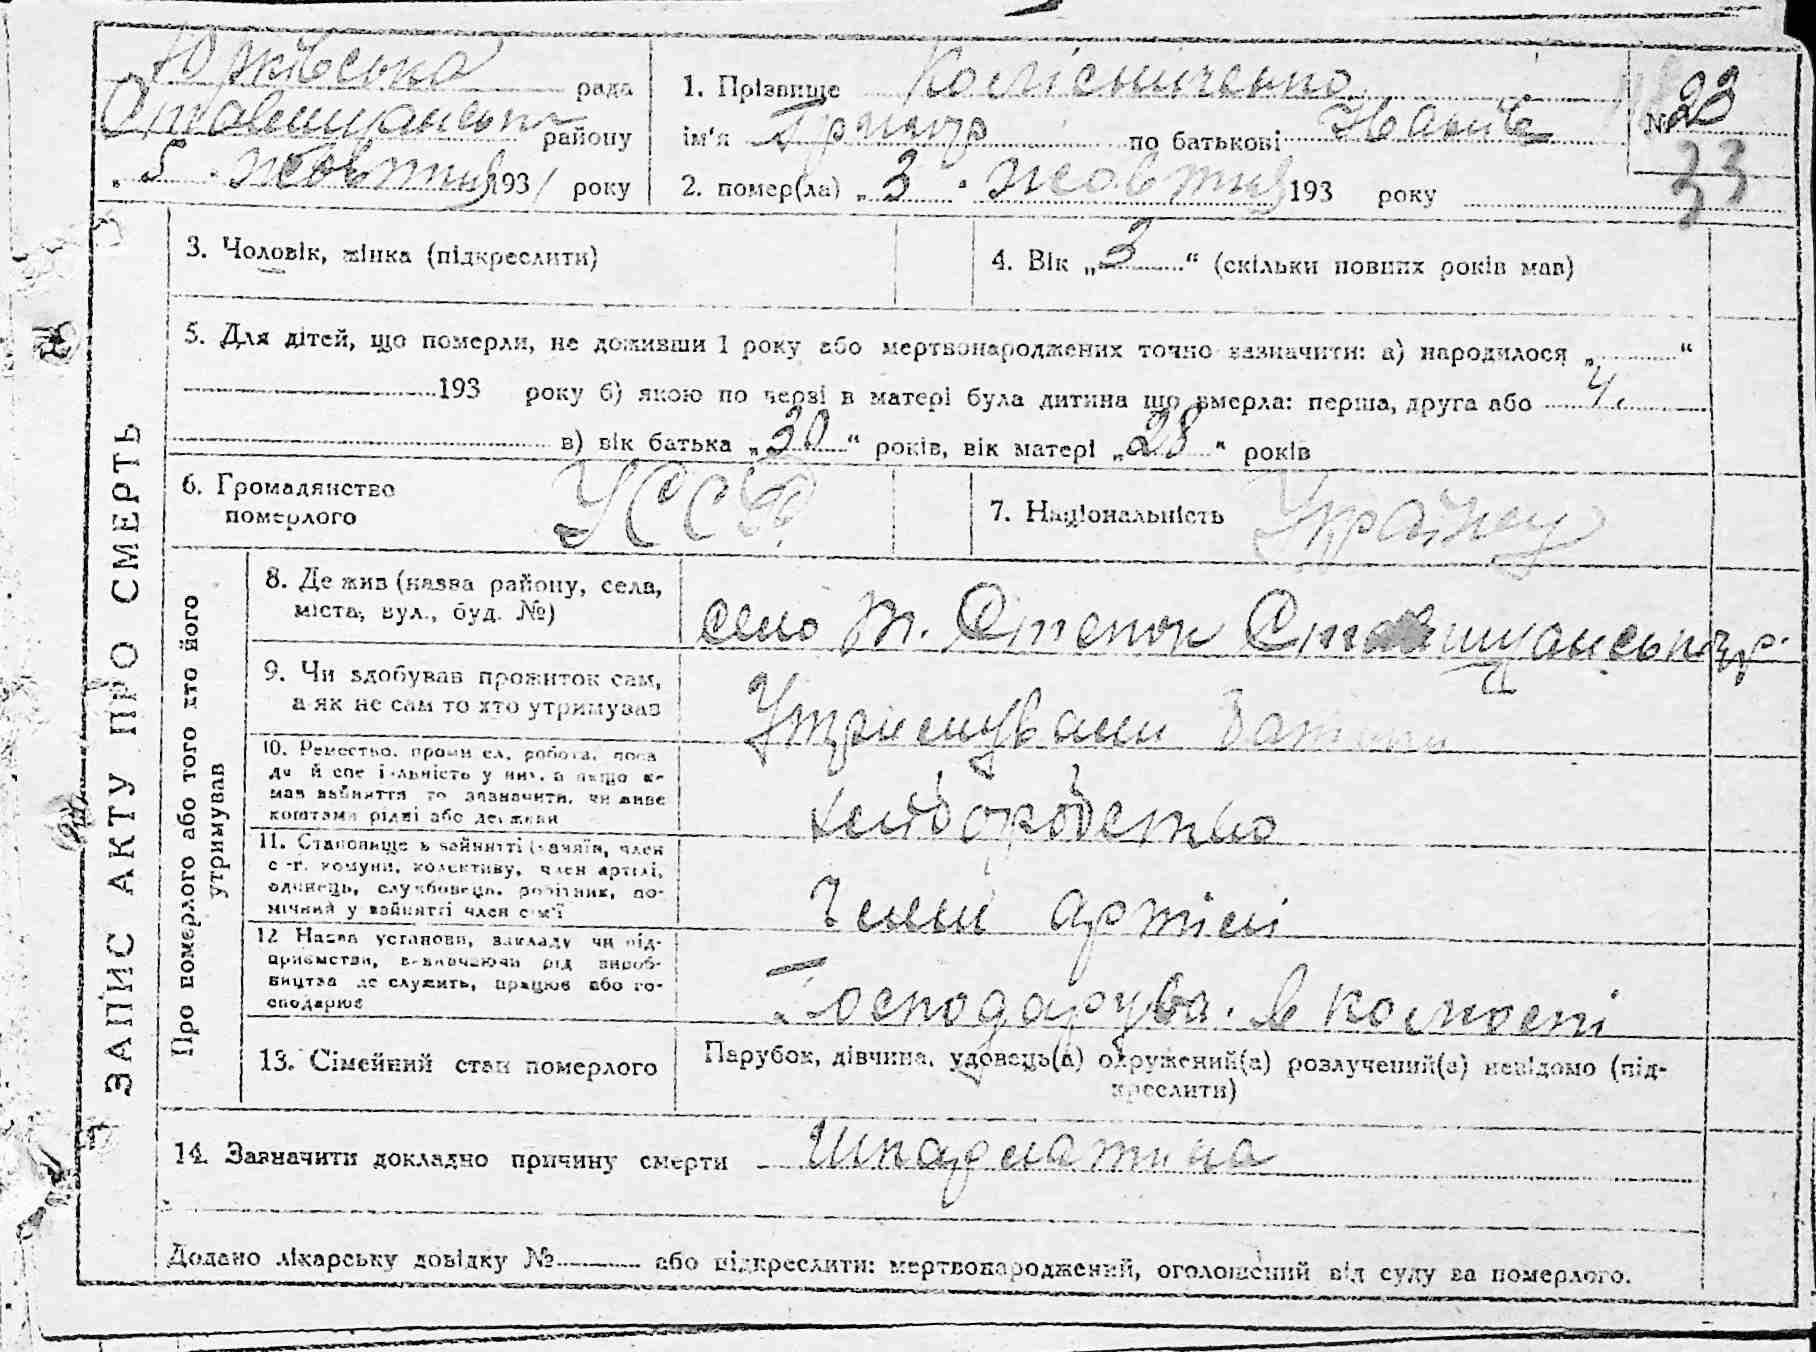 Юрківська рада
Ставищанськ району
„ 5 “ жовтня 1931 року
1. Прізвище Колісніченко
ім'я Грицько по батькові Іванів
№ 23
33
2. помер(ла) „ 3 “ жовтня 193 року
3. Чоловік, жінка (підкреслити)
4. Вік „ 3 “ (скільки повних років мав)
5. Для дітей, що померли, не доживши 1 року або мертвонароджених точно зазначити: а) народилося „ “
193 року б) якою по черзі в матері була дитина що вмерла: перша, друга або 4.
в) вік батька „ 30 “ років, вік матері „ 28 “ років
6. Громадянство
померлого
УССР
7. Національність
ЗАПИС АКТУ ПРО СМЕРТЬ
Про померлого або того хто його
утримував
8. Де жив (назва району, села,
міста, вул., буд. №)
село Степок Ставищанськ р.
9. Чи здобував прожиток сам,
а як не сам то хто утримував
Утримувани
10. Ремество, промисел, робота, поса
да й спеціяльність у них, а якщо не
мав зайняття то зазначити, чи живе
коштами рідні або держави
хліборобство
11. Становище в зайнятті (хазяїн, член
с.-г. комуни, колективу, член артілі,
одинець, службовець, робітник, по-
мічний у зайнятті член сім'ї
Член артілі
12 Назва установи, закладу чи під-
приємства, визначаючи рід вироб-
ництва де служить, працює або го-
сподарює
Господарува. в колгоспі
13. Сімейний стан померлого
Парубок, дівчина, удовець(а) одружений(а) розлучений(а) невідомо (під-
креслити)
14. Зазначити докладно причину смерти Шкарлатина
Додано лікарську довідку № або підкреслити: мертвонароджений, оголошений від суду за померлого.